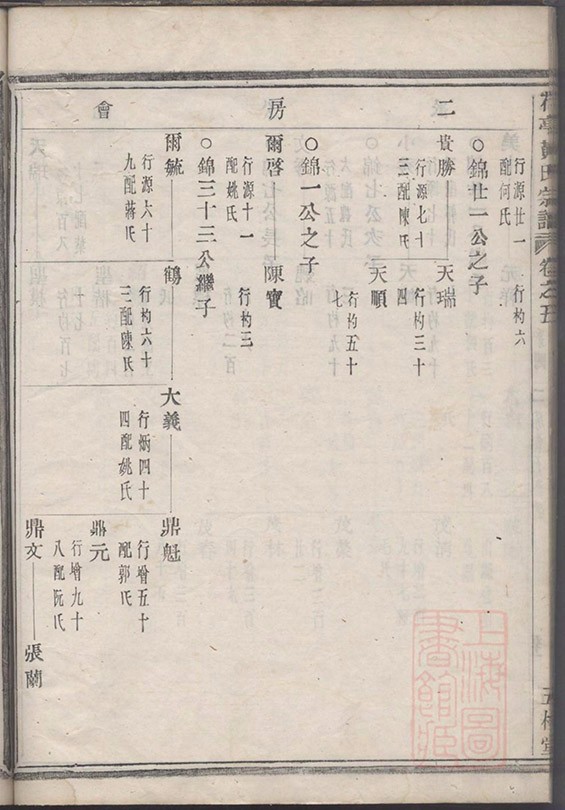 宗譜
卷之五
二
房
會
配何氏
行源廿一
行杓六
○錦廿一公之子
貴勝
行源七十
三配陳氏
天瑞
行杓三十
四
天順
行杓五十
七
○錦一公之子
爾啓
行源十一
配姚氏
陳寶
行杓三
○錦三十三公繼子
爾毓
行源六十
九配蔣氏
鶴
行杓六十
三配陳氏
大義
行炳四十
四配姚氏
鼎魁
行增五十
配郭氏
鼎元
行增九十
八配阮氏
鼎文
張蘭
上海圖
書館藏